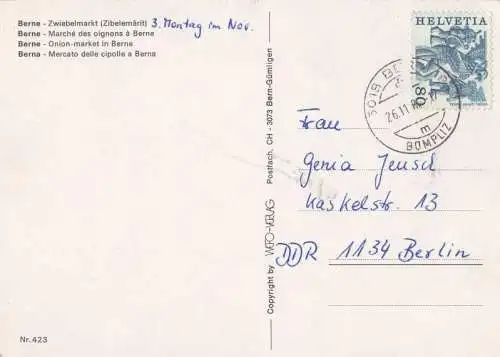 Berne - Zwiebelmarkt (Zibelemärit) 3. Montag im Nov.
Berne - Marché des oignons à Berne
Berne - Onion-market in Berne
Berna - Mercato delle cipolle a Berna
HELVETIA
80
3018 BE
26.11
m
BÜMPLIZ
Frau
Genia Jeusch
Kaskelstr. 13
DDR 1134 Berlin
Copyright by WEFO-VERLAG Postfach, CH - 3073 Bern-Gümligen
Nr. 423